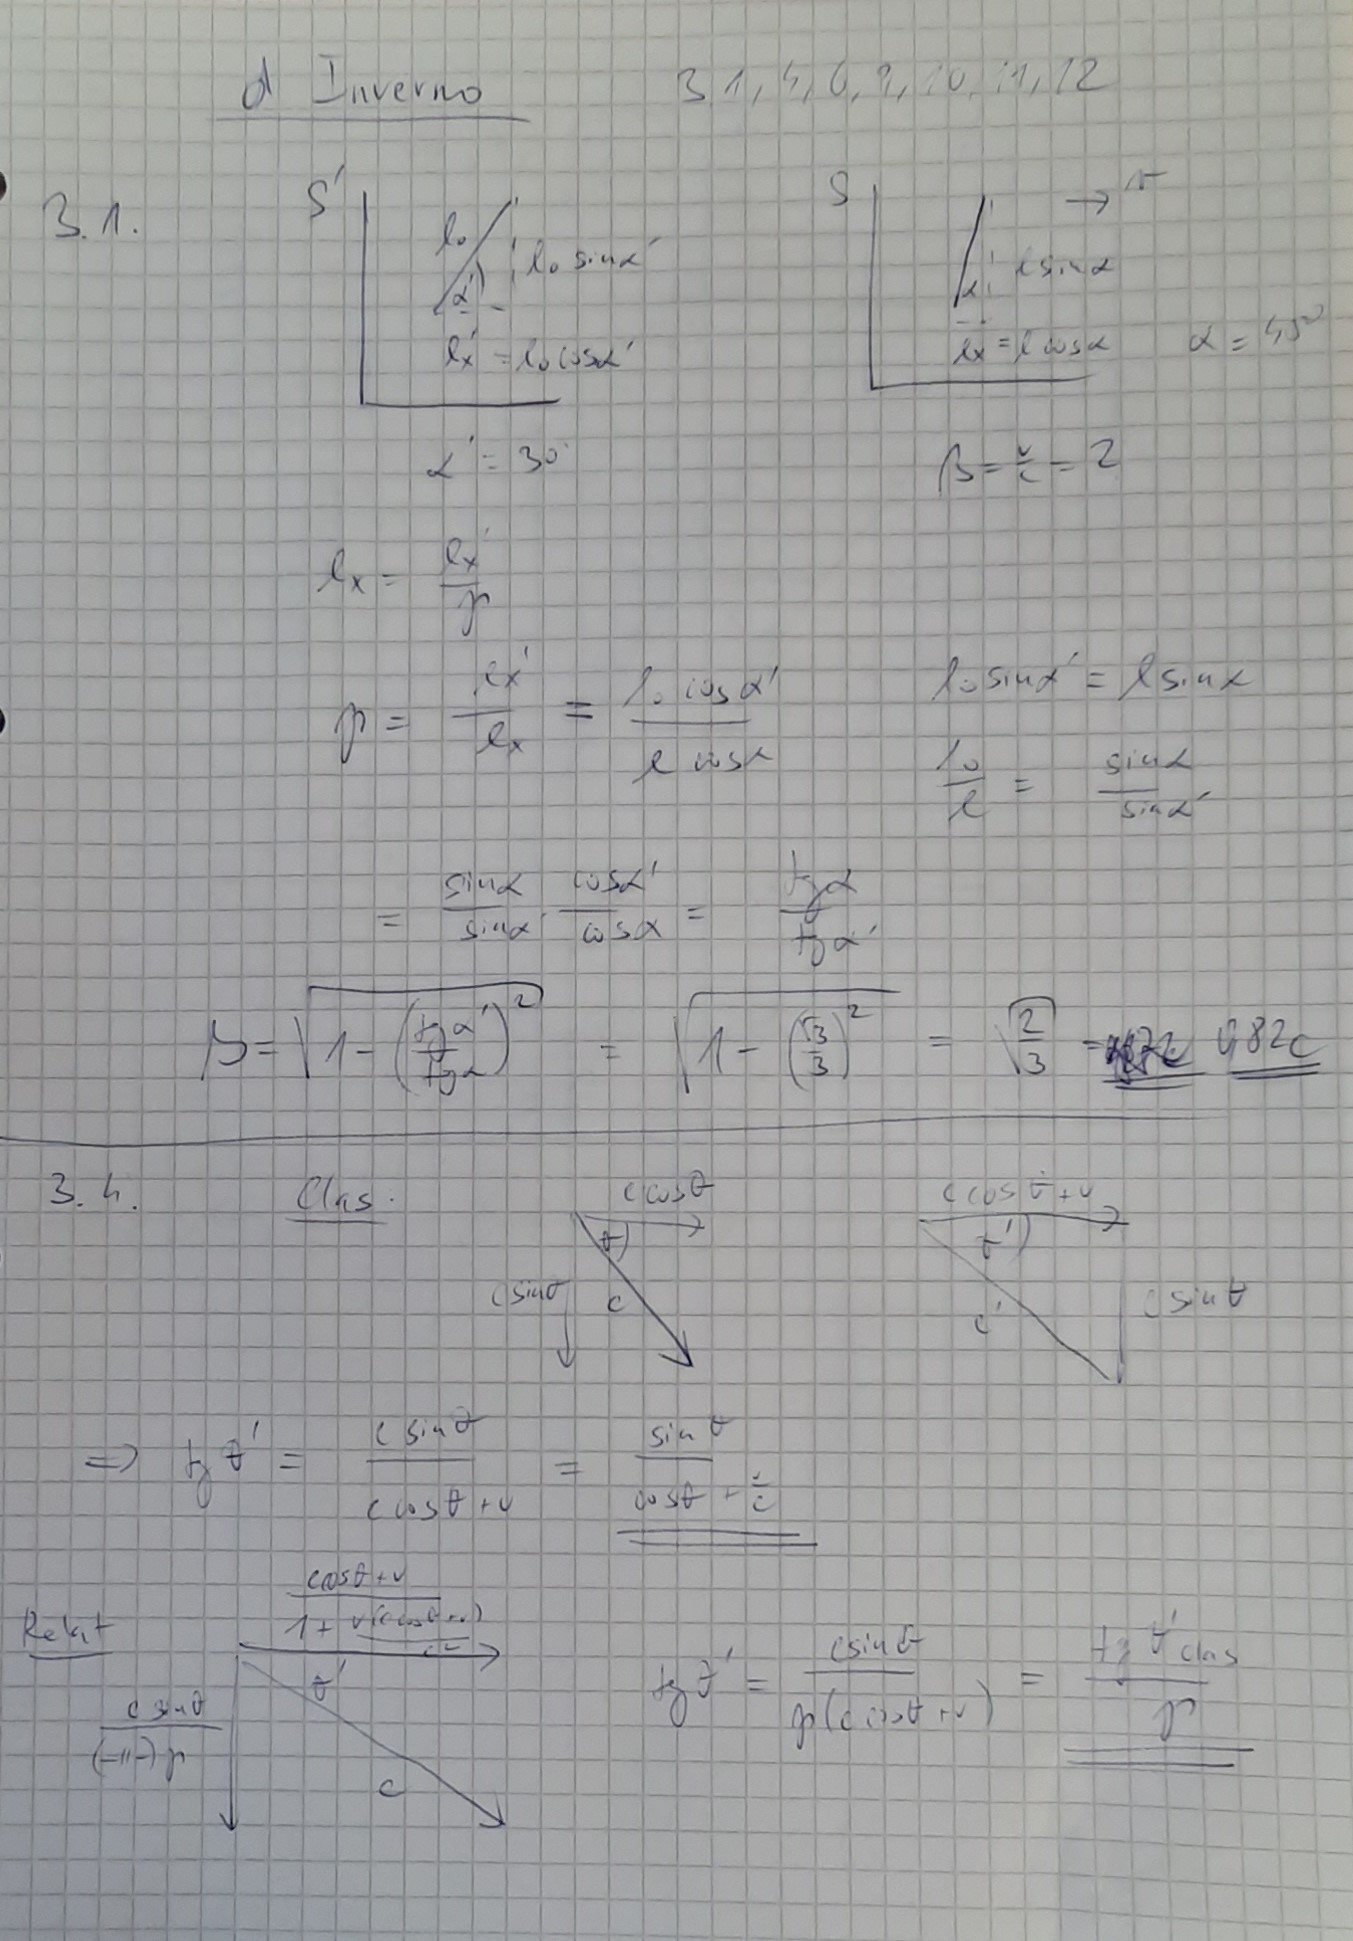 d Inverno 3.1, 4, 6, 9, 10, 11, 12
3.1. S' S → v
l₀ l₀ sinα' l sinα
α' α
lx' = l₀ cosα' lx = l cosα α = 45°
α' = 30° β = v/c = ?
lx = lx'/γ
γ = lx'/lx = l₀ cosα'/l cosα l₀ sinα' = l sinα
l₀/l = sinα/sinα'
= sinα/sinα' · cosα'/cosα = tgα/tgα'
β = √(1 - (tgα'/tgα)²) = √(1 - (√3/3)²) = √(2/3) = 0,82c
3.4. Clas. c cosθ c cosθ + v
θ θ'
c sinθ c c' c sinθ
=> tg θ' = c sinθ/c cosθ + v = sinθ/cosθ + v/c
Relat cosθ + v/1 + v(c cosθ + v)/c²
θ' tg θ' = c sinθ/γ(c cosθ + v) = tg θ'clas/γ
c sinθ/(-"-)γ
c